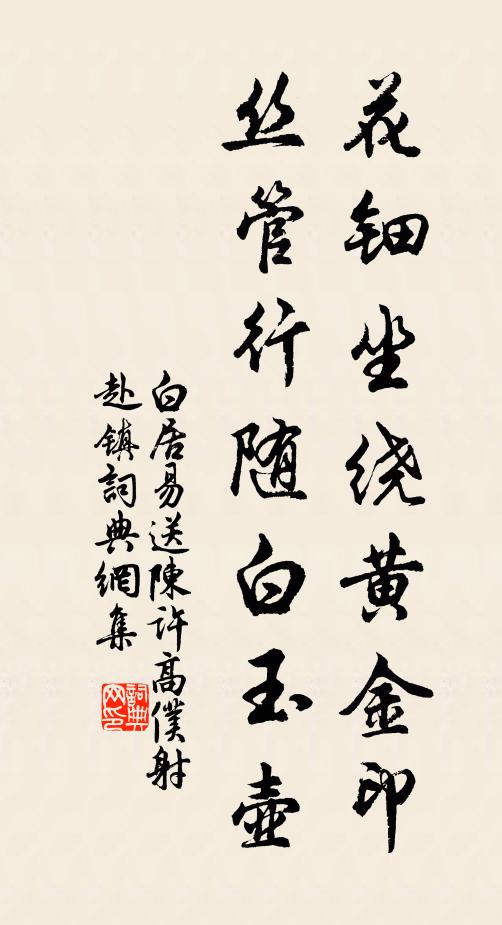 花钿坐绕黄金印
丝管行随白玉壶
白居易送陳許高僕射
赴鎮詞典網集
詞典
网印